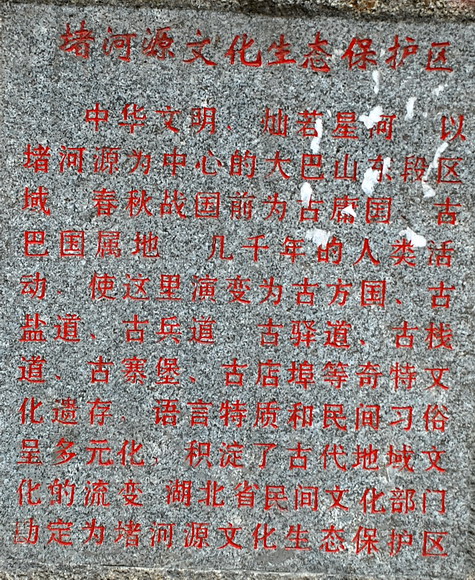 堵河源文化生态保护区
中华文明、灿若星河 以
堵河源为中心的大巴山东段区
域 春秋战国前为古庸国、古
巴国属地 几千年的人类活
动、使这里演变为古方国、古
盐道、古兵道 古驿道、古栈
道 古寨堡、古店埠等奇特文
化遗存、语言特质和民间习俗
呈多元化, 积淀了古代地域文
化的流变 湖北省民间文化部门
勘定为堵河源文化生态保护区